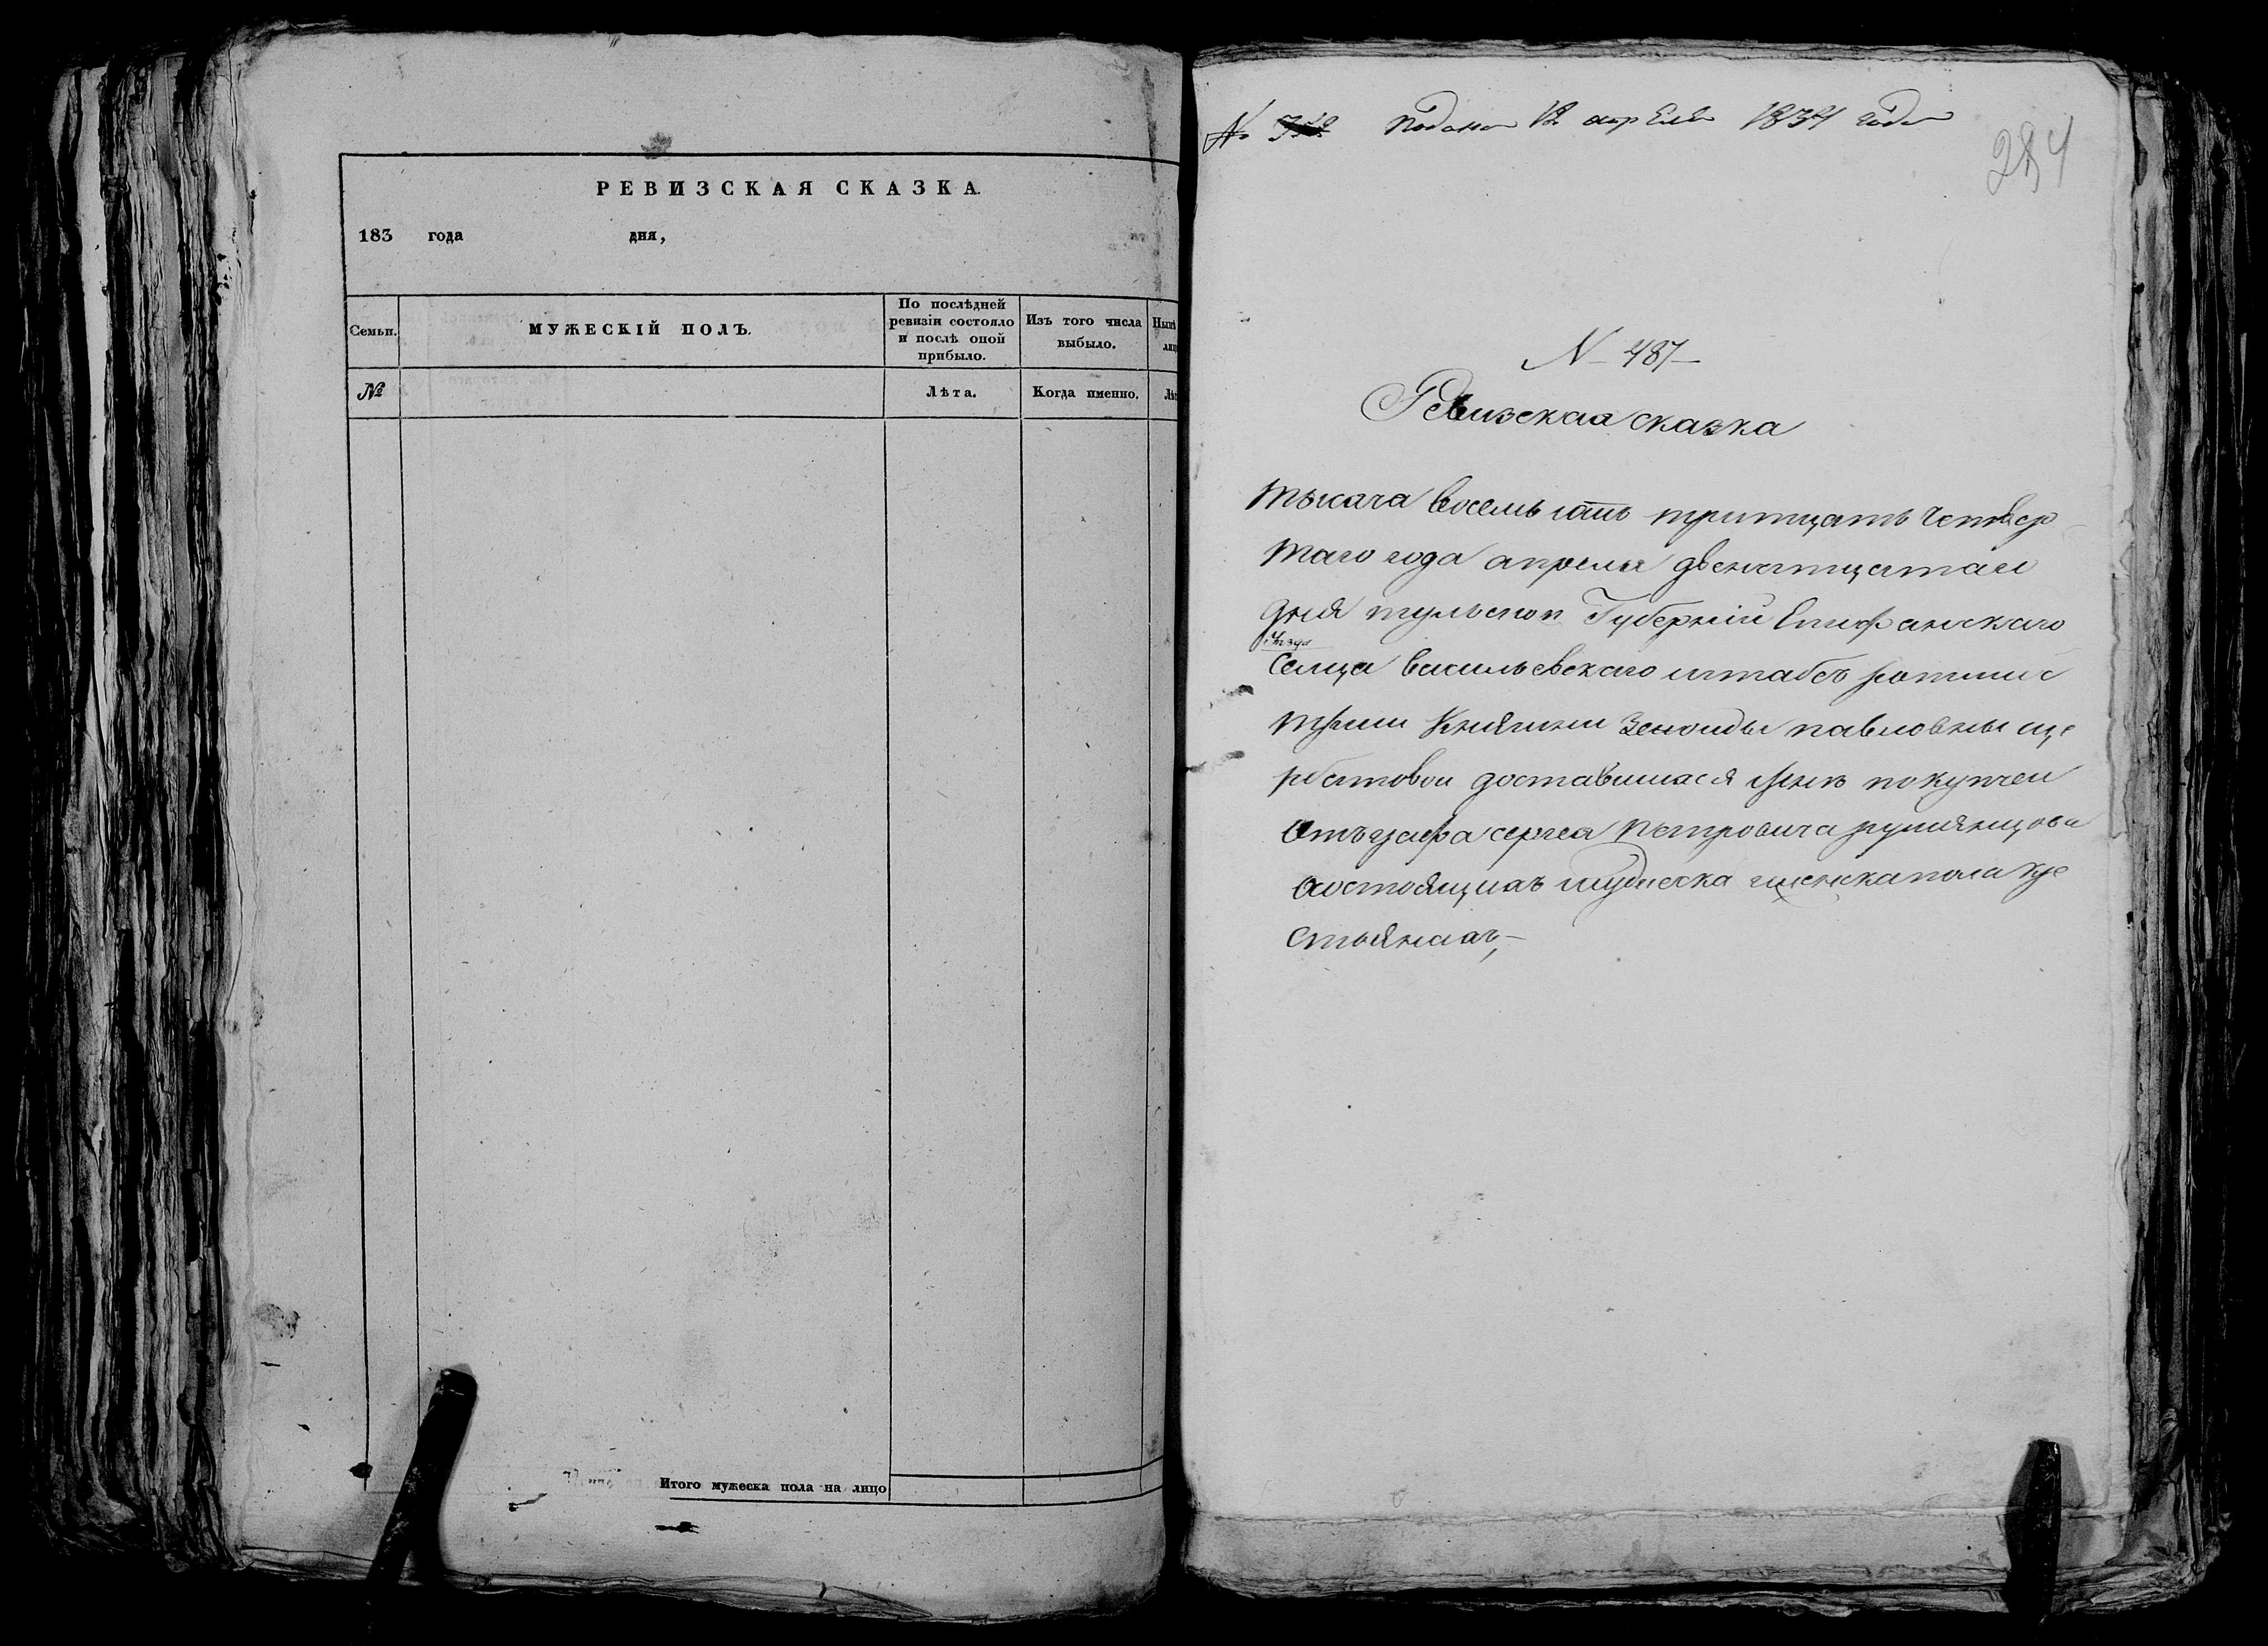 РЕВИЗСКАЯ СКАЗКА.
183 года дня,
Семьи.
МУЖЕСКІЙ ПОЛЪ.
По послѣдней
ревизіи состояло
и послѣ оной
прибыло.
Изъ того числа
выбыло.
№
Лѣта.
Когда именно.
Итого мужеска пола на лицо
№ подана 12 апреля 1834 года
284
N 487
Ревизская сказка
тысеча восемь сотъ тритцать четвер
таго года апреля двенатцатаго
дня тульской Губерніи Епифанскаго
уезда
селца васильевскаго штабсъ ротмис
трши Княгини Зеноиды павловны ще
рбатовои доставшихся мнѣ по купчеи
отъ графа сергея петровича румянцова
о состоящихъ мужеска и женска пола кре
стьянахъ,